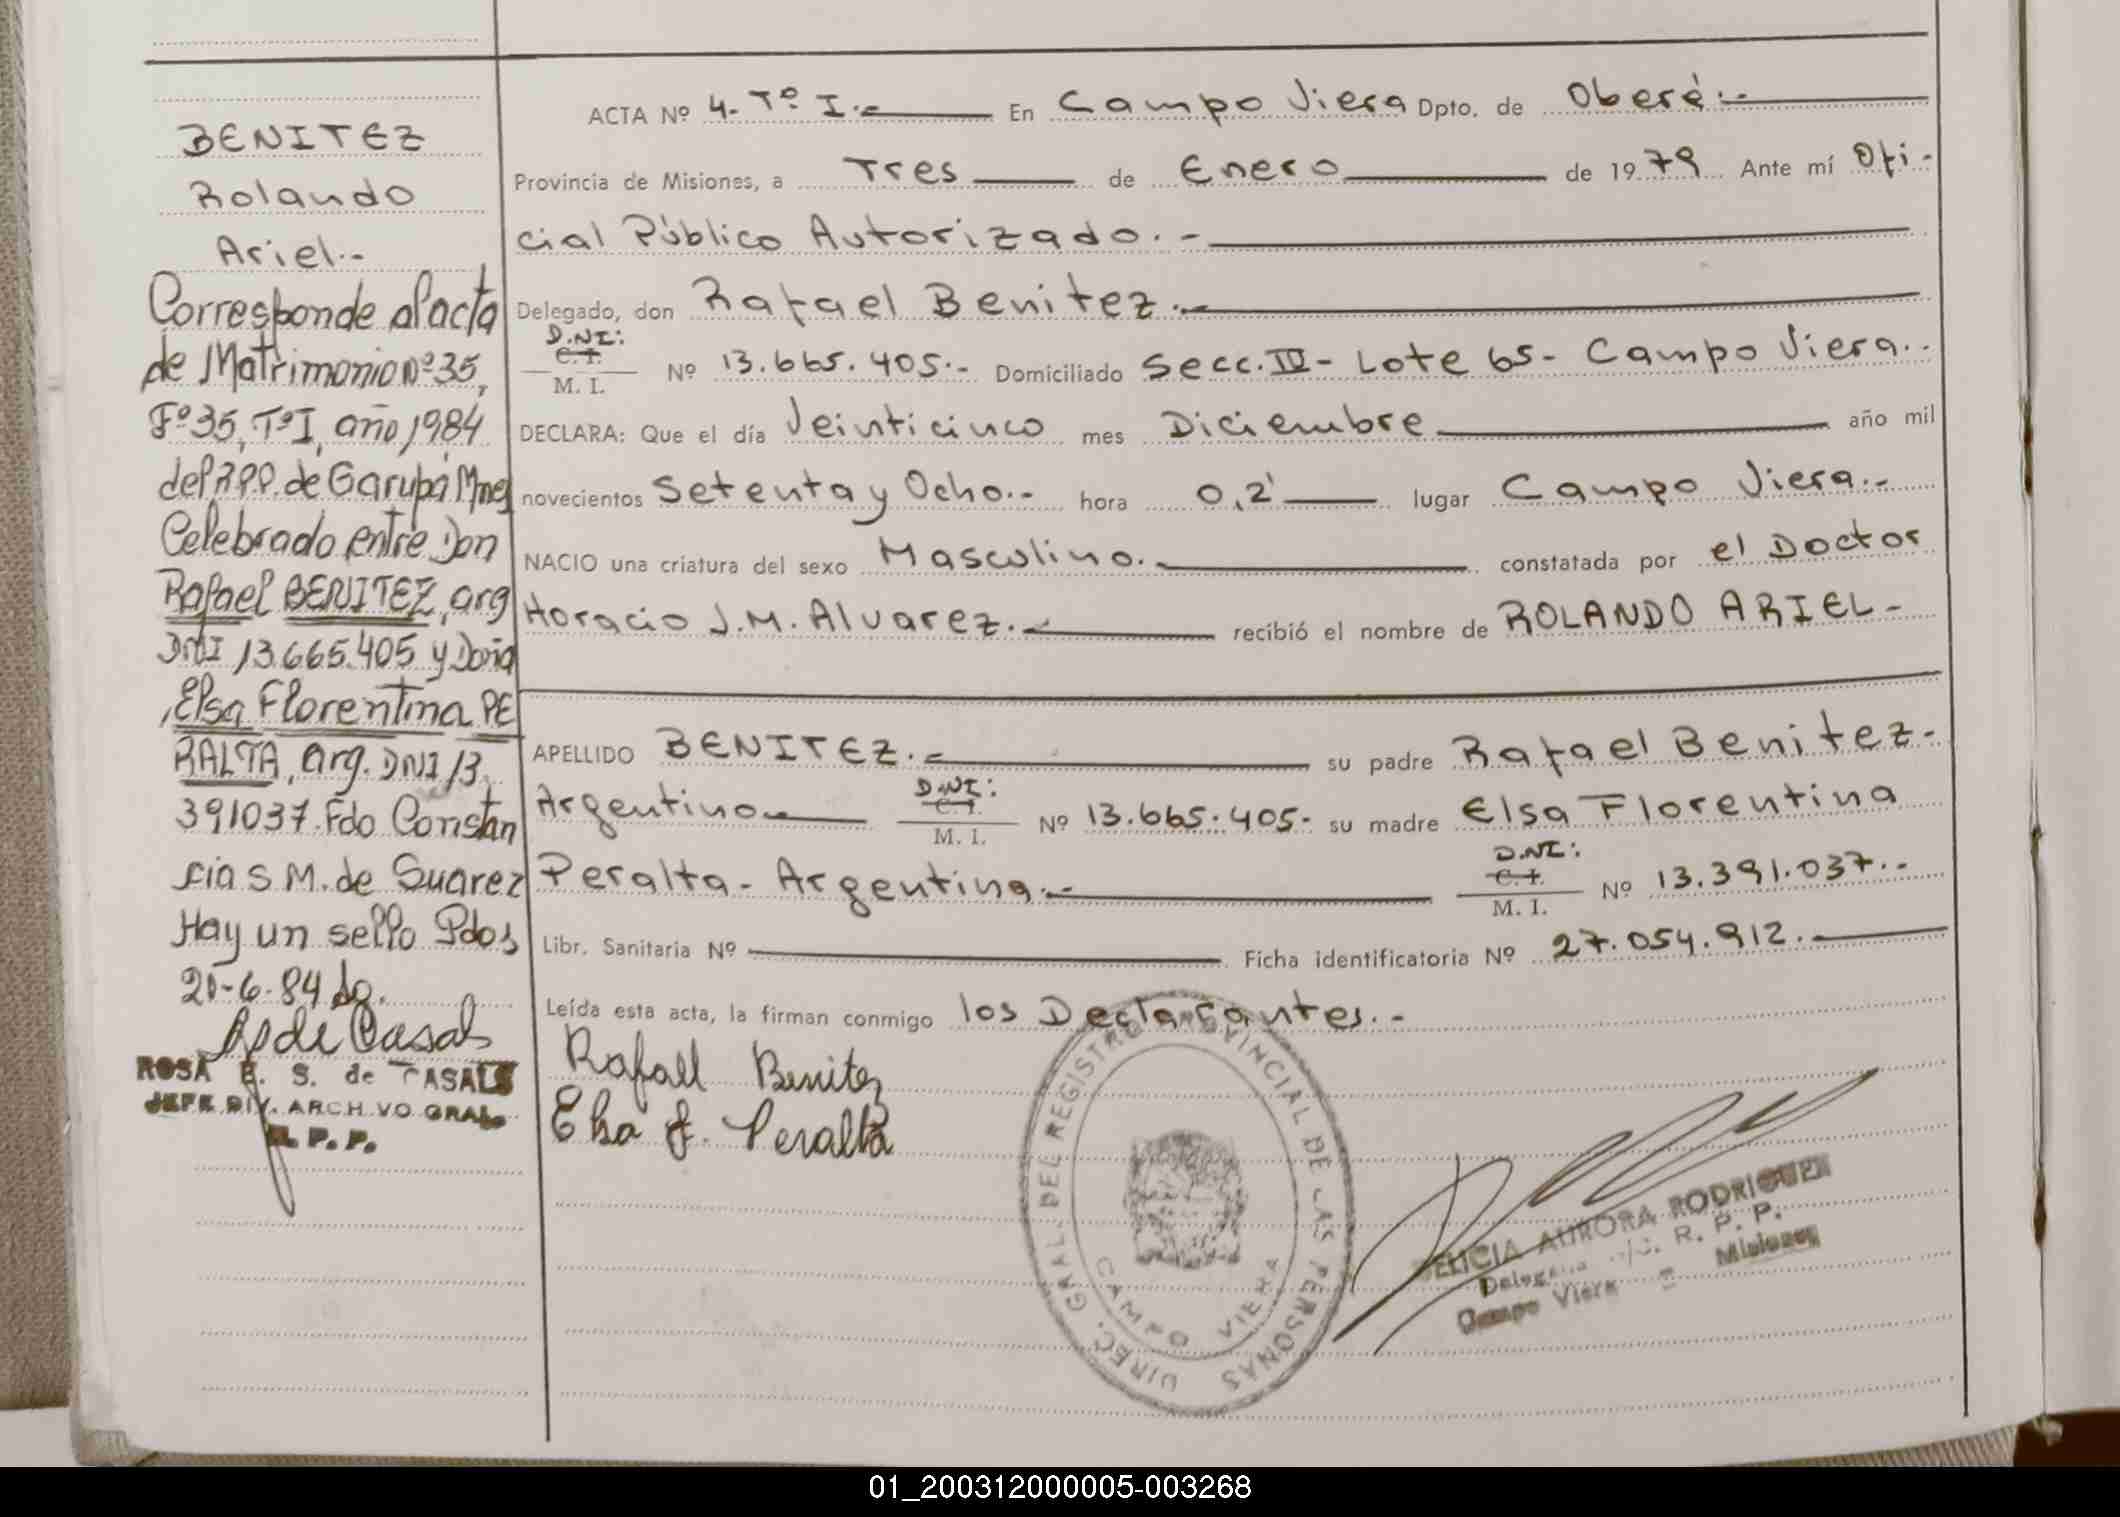 BENITEZ
Rolando
Ariel.-
Corresponde al acta
de Matrimonio Nº 35,
Fº 35, Tº I, año 1984
del R.P.P. de Garupá Mnes
Celebrado entre Don
Rafael BENITEZ, arg
DNI 13.665.405 y Doña
Elsa Florentina PE
RALTA, arg. DNI 13
391037. Fdo Constan
cia S M. de Suarez
Hay un sello Pdos
20-6-84 dg.
R de Casals
ROSA E. S. de CASALS
JEFE DIV. ARCHIVO GRAL.
R. P. P.
ACTA Nº 4.- Tº I.- En Campo Viera Dpto. de Oberá.-
Provincia de Misiones, a Tres de Enero de 1979 Ante mí Ofi-
cial Público Autorizado.-
Delegado, don Rafael Benitez.-
D.NI:
C. I.
M. I. Nº 13.665.405.- Domiciliado Secc. IV - Lote 65 - Campo Viera.-
DECLARA: Que el día Veinticinco mes Diciembre año mil
novecientos Setenta y Ocho.- hora 0,2' lugar Campo Viera.-
NACIO una criatura del sexo Masculino.- constatada por el Doctor
Horacio J.M. Alvarez.- recibió el nombre de ROLANDO ARIEL-
APELLIDO BENITEZ.- su padre Rafael Benitez-
Argentino D.NI: C. I. M. I. Nº 13.665.405- su madre Elsa Florentina
Peralta - Argentina.- D.NI: C. I. M. I. Nº 13.391.037.-
Libr. Sanitaria Nº Ficha identificatoria Nº 27.054.912.
Leída esta acta, la firman conmigo los Declarantes.-
Rafael Benitez
Elsa F. Peralta
DIREC. GRAL. DEL REGISTRO PROVINCIAL DE LAS PERSONAS
CAMPO VIERA
DELICIA AURORA RODRIGUEZ
Delegada R. P. P.
Campo Viera - Misiones
01_200312000005-003268